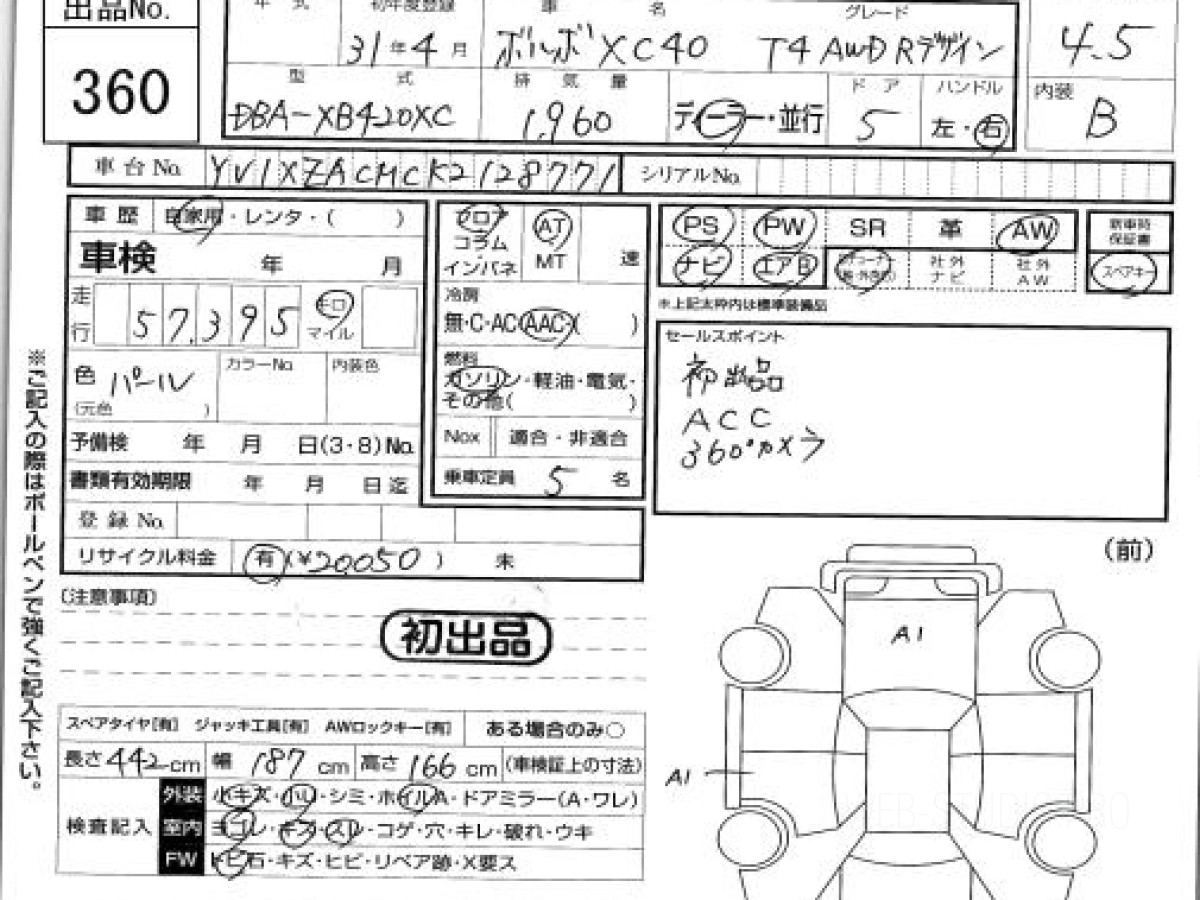 出品No.
360
年式 初年度登録 車名 グレード
31年4月 ボルボ XC40 T4 AWD Rデザイン
4.5
型式 排気量 ドア ハンドル 内装
DBA-XB420XC 1,960 ディーラー・並行 5 左・右 B
車台No. YV1XZACMCK2128771 シリアルNo.
車歴 自家用・レンタ・( )
車検 年 月
走行 57,395 キロ マイル
色 パール カラーNo. 内装色
(元色 )
予備検 年 月 日(3・8)No.
書類有効期限 年 月 日迄
登録No.
リサイクル料金 有(¥20,050) 未
フロア コラム インパネ AT MT 速
冷房
無・C・AC・AAC・( )
燃料
ガソリン・軽油・電気・
その他( )
Nox 適合・非適合
乗車定員 5 名
PS PW SR 革 AW
ナビ エアB 社外ナビ 社外AW
新車時保証書
スペアキー
※上記太枠内は標準装備品
セールスポイント
初出品
ACC
360°カメラ
※ご記入の際はボールペンで強くご記入下さい。
(注意事項)
初出品
スペアタイヤ[有] ジャッキ工具[有] AWロックキー[有] ある場合のみ○
長さ442cm 幅187cm 高さ166cm (車検証上の寸法)
検査記入
外装 小キズ・小U・シミ・ホイルA・ドアミラー(A・ワレ)
室内 ヨゴレ・キズ・スレ・コゲ・穴・キレ・破れ・ウキ
FW トビ石・キズ・ヒビ・リペア跡・X要ス
(前)
A1
A1